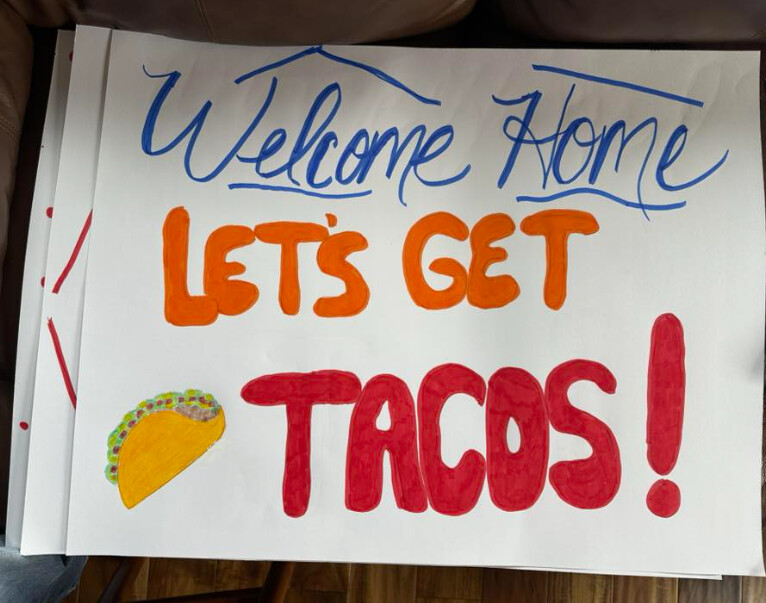 Welcome Home
LET'S GET
TACOS!